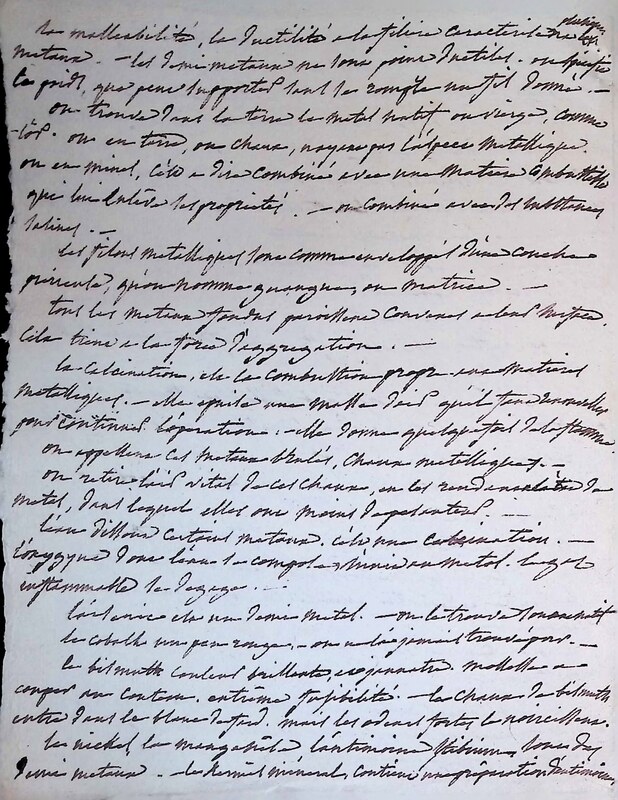 la malleabilité, la ductilité et la filiere caracterisent plusieurs
metaux. — les demi metaux ne sont point ductiles. on
le poids, que peut supporter sans se rompre un fil donné. —
on trouve dans la terre le metal natif ou vierge, comme
l'or. ou en terre, ou chaux, n'ayant pas l'aspect metallique.
ou en mines, c'est a dire combiné avec une matiere combustible
qui lui enlève ses proprietés. — ou combiné avec des substances
salines. —
les filons metalliques sont comme enveloppés d'une couche
qu'on nomme gangue, ou matrice. —
tous les metaux fondus paroissent convexes a leur surface.
cela tient a la force d'aggregation. —
la calcination, est la combustion propre aux matieres
metalliques. — elle exige une masse d'air qu'il faut renouveller
pour continuer l'opération. — elle donne quelque fois de la flamme.
on appelle ces metaux brulés, chaux metalliques. —
on retire l'air vital de ces chaux, en les rendant a l'etat de
metal, dans lequel elles ont moins de pesanteur. —
l'eau dissout certains metaux. c'est une calcination. —
l'oxygyne dont l'eau se compose s'unit au metal. le gaz
inflammable se degage. —
l'arsenic est un demi metal. — on le trouve souvent natif
le cobalt un peu rouge. — on ne l'a jamais trouvé pur. —
le bismuth couleur brillante, et jaunatre. mollesse a
couper au couteau. extrême fusibilité. — la chaux de bismuth
entre dans le blanc de fard. mais les odeurs fortes le noircissent.
le nickel, la manganèse l'antimoine stibium, sont des
demi metaux. — le Kermes minéral, contient une préparation d'antimoine